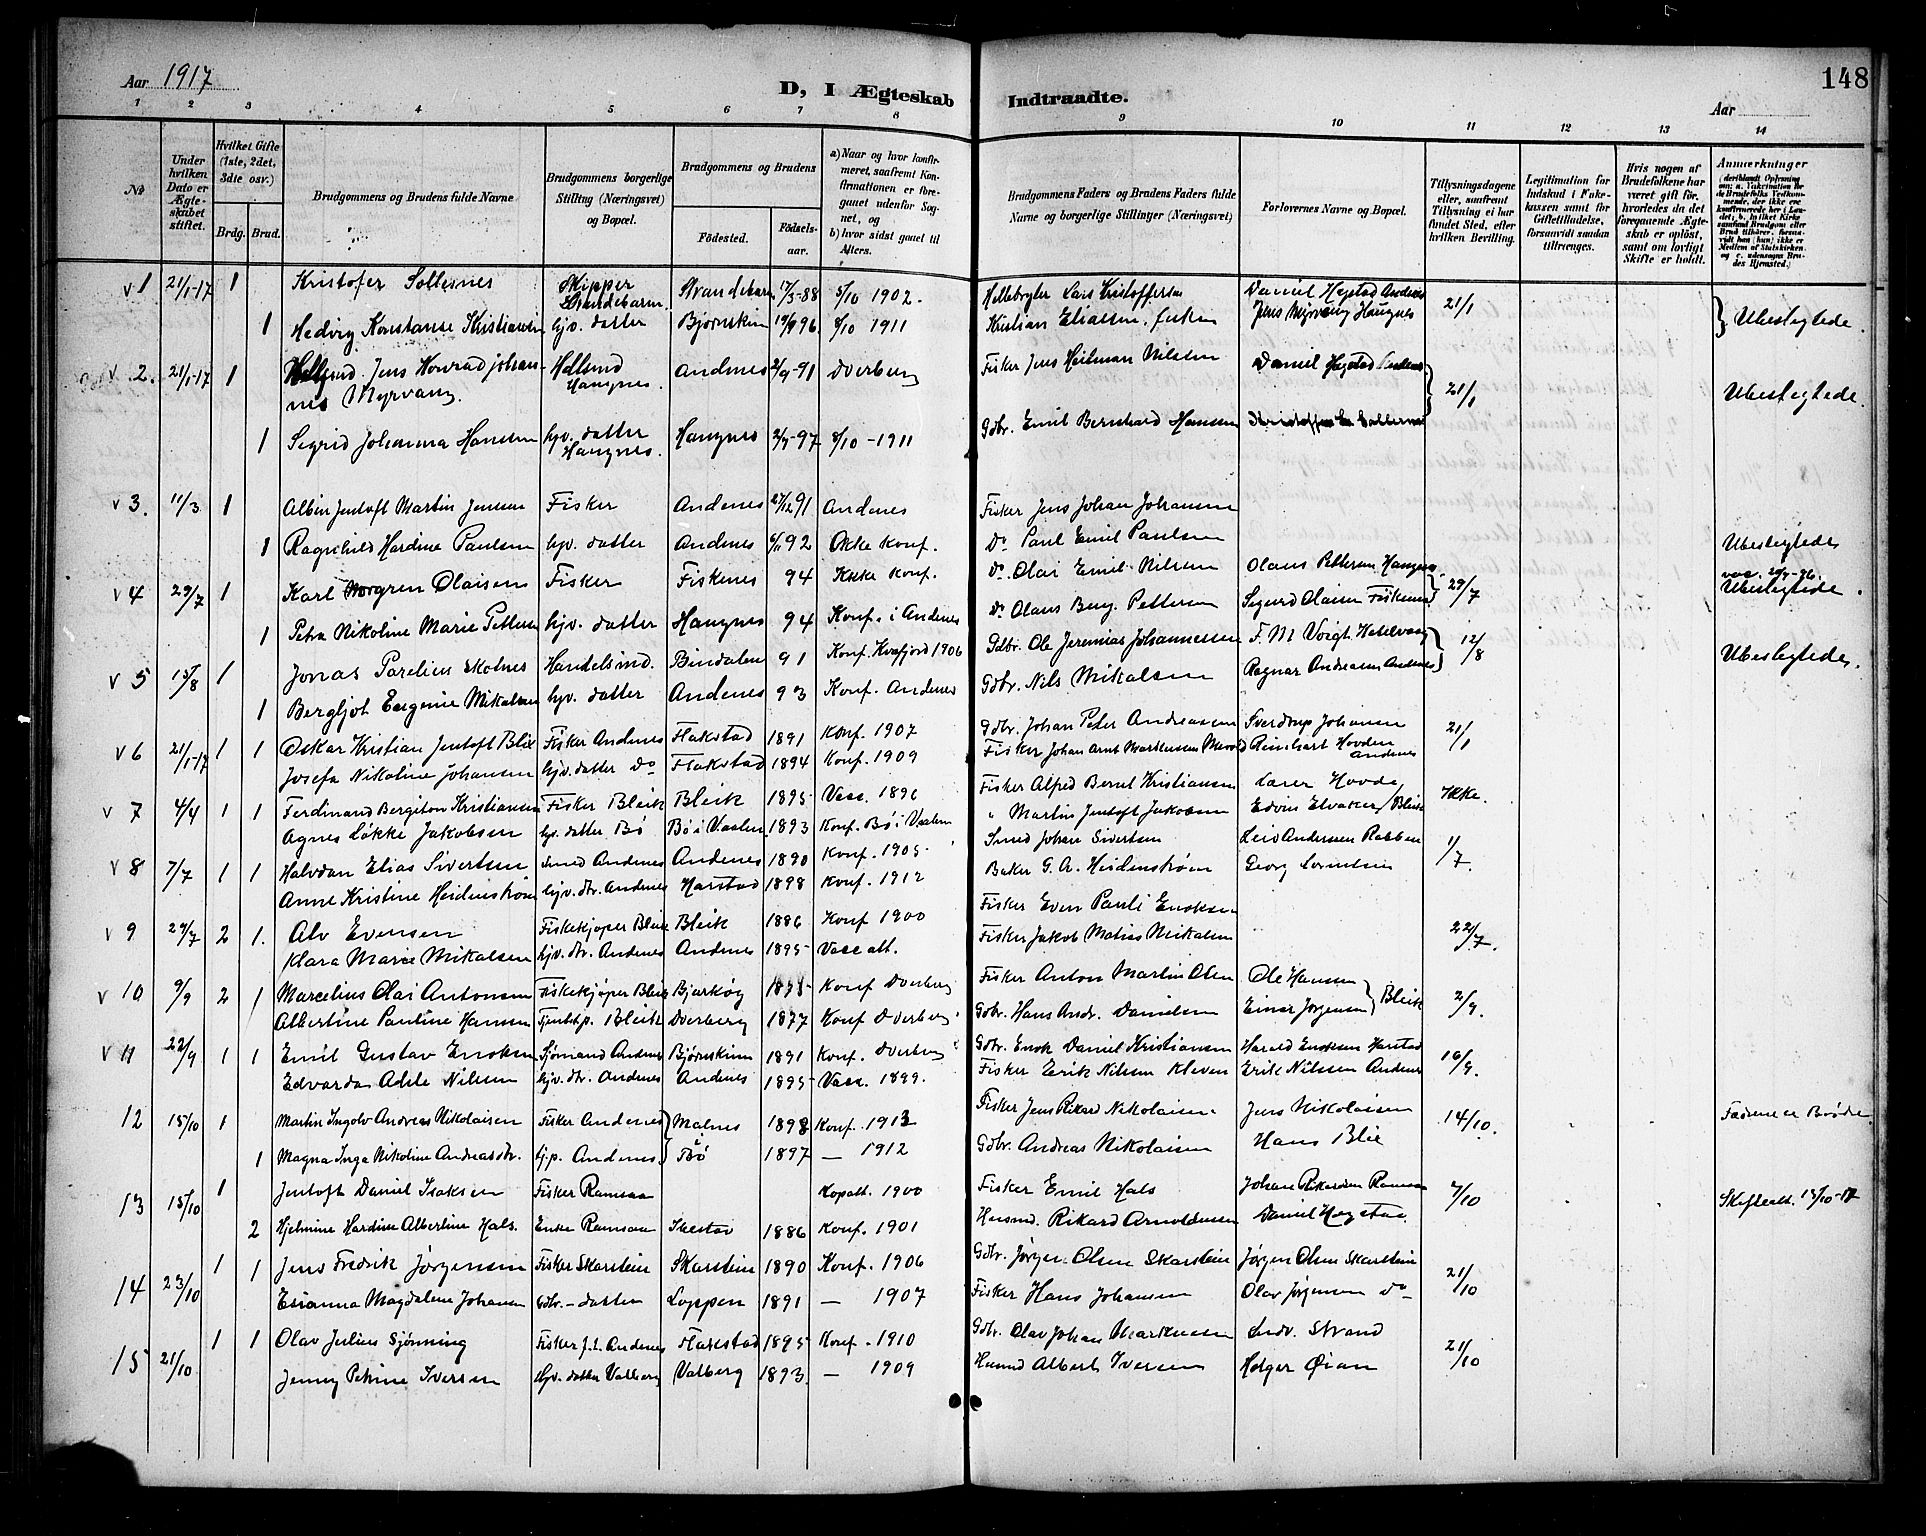 Aar 1917
D, I Ægteskab Indtraadte.
148
Aar
1 2 3 4 5 6 7 8 9 10 11 12 13 14
No
Under hvilken Dato er Ægteskabet stiftet.
Hvilket Gifte (1ste, 2det, 3die osv.)
Brdg. Brud.
Brudgommens og Brudens fulde Navne
Brudgommens borgerlige Stilling (Næringsvei) og Bopæl.
Brudgommens og Brudens
Fødested. Fødselsaar.
a) Naar og hvor konfirmeret, saafremt Konfirmationen er foregaaet udenfor Sognet, og
b) hvor sidst gaaet til Alters.
Brudgommens Faders og Brudens Faders fulde Navne og borgerlige Stillinger (Næringsvei)
Forlovernes Navne og Bopæl.
Tillysningsdagene eller, saafremt Tillysning ei har fundet Sted, efter hvilken Bevilling.
Legitimation for Indskud i Fakkassen samt for Giftetilladelse, forsaavidt saadan tiltrænges.
Hvis nogen af Brudefolkene har været gift før, hvorledes da det foregaaende Ægteskab er opløst, samt om lovligt Skifte er holdt.
Anmærkninger
v 1 21/1-17 1 Kristofer Solternes Skipper Strandebarm Strandebarm 17/3-88 5/10 1902. Lars Kristoffersen Daniel Høgstad Andenes 21/1
1 Hedvig Konstanse Kristiansen gv. datter Bjørnskin 19/9 96 8/10 1911 Kristian Eliassen, fisker Jens Myrvang Haugnes } Ubeslegtede.
v 2. 21/1-17 1 Jens Konrad Johannes Myrvang. Haugnes. Andenes 2/9-91 Dverberg Fisker Jens Heitman Nilsen Daniel Høgstad Andenes 21/1 Ubeslegtede.
1 Sigrid Johanna Hansen gv. datter Haugnes. Haugnes 2/7-97 8/10-1911 Gdbr. Emil Bernhard Hanssen
v 3. 11/3 1 Albin Jentoft Martin Jensen Fisker Andenes 27/12 91 Andenes Fisker Jens Johan Johansen
1 Ragnhild Hardine Paulsen gv. datter Andenes 6/11 92 Ikke konf. Do Paul Emil Paulsen Ubeslegtede
v 4 29/7 1 Karl Norgren Olaisen Fisker Fiskenes 94 Ikke konf. Do. Olai Emil Nilsen Olaus Pettersen Haugnes. 29/7 Ubeslegtede.
1 Petra Nikoline Marie Pettersen gv. datter Haugnes 94 Konf. i Andenes Do Olaus Berg. Pettersen Sigurd Olaisen Fiskenes
v 5 15/8 1 Jonas Parelius Skotnes Handelsmd. Bindalen 91 Konf. Kvæfjord 1906 Gdbr. Ole Jeremias Johannessen F. M Voigt 12/8 Ubeslegtede.
1 Bergljot Eugenie Mikalsen gv. datter Andenes 93 Konf. Andenes Gdbr. Nils Mikalsen Ragnar Andreasen Andenes
v 6 21/1-17 1 1 Oskar Kristian Jentoft Blie Fisker Andenes Flakstad 1891 Konf. 1907 Gdbr. Johan Peter Andreassen Sverdrup Johansen 21/1
Josefa Nikoline Johansen gv. datter Do Flakstad 1894 Konf. 1909 Fisker Johan Arnt Martinussen Reinhart Hovden Andenes
v 7 4/4 1 1 Ferdinand Bergiton Kristiansen Fisker Bleik Bleik 1895 Vacc. 1896 Fisker Alfred Bernt Kristiansen Lærer Hovde Ikke.
Agnes Løkke Jakobsen gv. datter Bø Bø i Vesteraalen 1893 Konf. Bø i Vesteraalen " Martin Jentoft Jakobsen Edvin Elvaker / Bleik
v 8 7/7 1 1 Halvdan Elias Sivertsen Smed Andenes Andenes 1890 Konf. 1905 Smed Johan Sivertsen Leiv Andersen Rabben 1/7.
Anne Kristine Heidenstrøm gv. dtr. Andenes Harstad 1898 Konf. 1912 Baker G. A. Heidenstrøm Georg Lorentsen
v 9 29/7 2 1. Alv Evensen Fiskekjøper Bleik Bleik 1886 Konf 1900 Fisker Even Pauli Enoksen 22/7.
Klara Marie Mikalsen gv. dtr. Andenes Andenes 1895 Vacc att. Fisker Jakob Matias Mikalsen
v 10 9/9 2 1 Marcelius Olai Antonsen Fiskekjøper Bleik Bjarkøy Konf Dverberg Fisker Anton Martin Olsen Ole Hansen } Bleik 2/9.
Albertine Pauline Hansen Tjenestp. Bleik Dverberg 1877 Konf Dverberg Gdbr. Hans Andr. Danielsen Einar Jørgensen
v 11 22/9 1 1 Emil Gustav Enoksen Sjømand Andenes Bjørnskinn 1891 Konf. Dverberg Gdbr. Enok Daniel Kristiansen Harald Enoksen Harstad 16/9.
Edvarda Adele Nilsen gv. dtr. Andenes Andenes 1895 Vacc. 1899. Fisker Erik Nilsen Kleven Erik Nilssen Andenes
12 15/10 1 Martin Ingolv Andreas Nikolaisen Fisker Andenes Malnes 1893 Konf. 1913 Fisker Jens Rikard Nikolaisen. Jens Nikolaisen 14/10. Fædrene er Brødre
1 Magna Inga Nikoline Andreasdtr. tj.p. Andenes. Bø 1897 — 1912 Gdbr. Andreas Nikolaisen Hans Blie
13 15/10 1 Jentoft Daniel Isaksen Fisker Ramsaa Kopatt. 1900 Fisker Emil Hals Johan Rikardsen Ramsaa 7/10 Skifteatt. 13/10-17
2 Hjelmine Hardine Albertine Hals. Enke Ramsaa 1886 Konf. 1901 Husmd. Rikard Arnoldussen Daniel Høgstad.
14 23/10 1 1 Jens Fredrik Jørgensen Fisker Skarstein Skarstein 1890 Konf. 1906 Gdbr. Jørgen Olsen Skarstein Jørgen Olsen Skarstein 21/10
Esianna Magdalene Johansen Gdbr.-datter Loppen 1891 — 1907 Fisker Hans Johansen Olav Jørgensen Do
15 21/10 1 1 Olav Julius Sjønning Fisker Andenes Flakstad 1895 Konf. 1910 Gdbr. Olav Johan Markussen Ludv. Strand 21/10
Jenny Petrine Iversen gv. datter Valberg Valberg 1893. — 1909 Husmd Albert Iversen Holger Øian